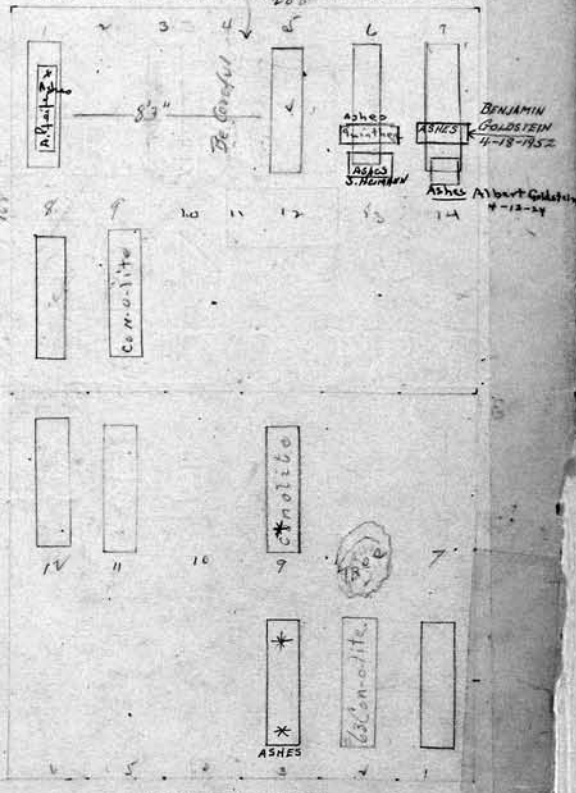 1 2 3 4 5 6 7
Ashes
8'3"
Be Careful
Ashes
Gunther
Ashes
S. HEIMANN
ASHES
BENJAMIN
GOLDSTEIN
4-18-1952
Ashes Albert Goldstein
4-12-24
8 9 10 11 12 13 14
Con-o-lite
Conolite
Tree
12 11 10 9 7
63 Con-o-lite.
ASHES
6 5 3 2 1